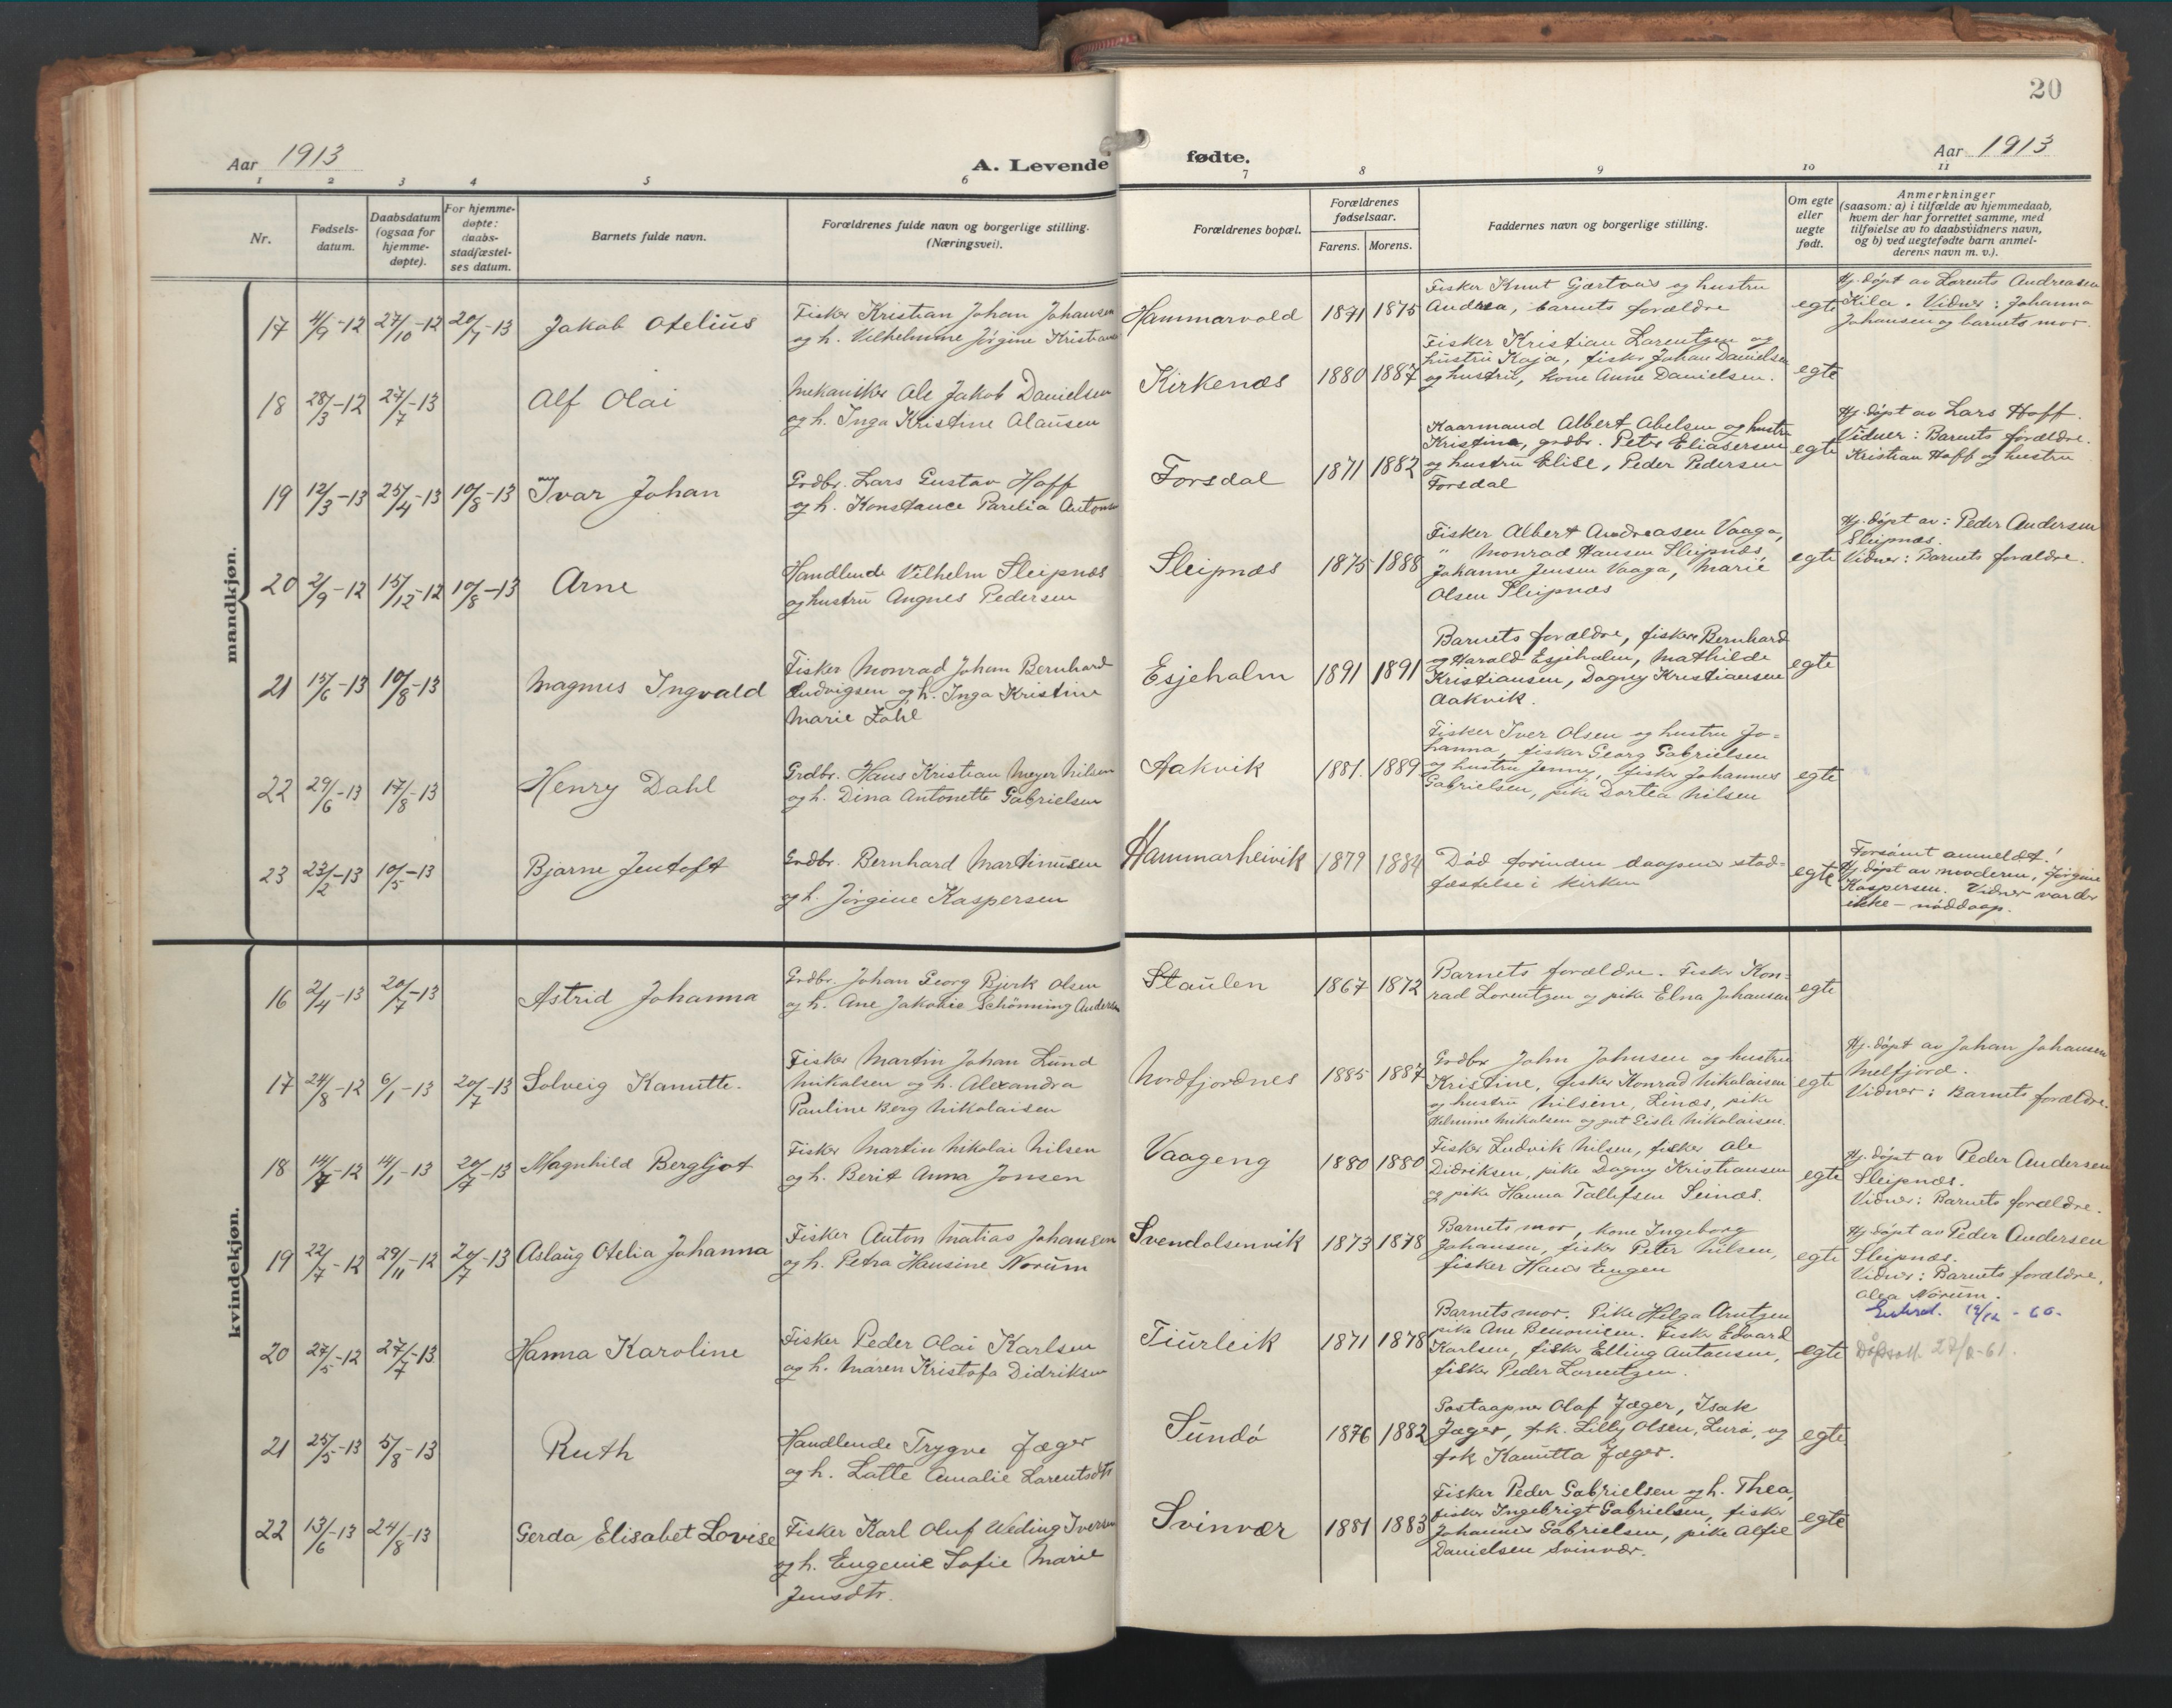 20
Aar 1913
A. Levende fødte.
Aar 1913
1 2 3 4 5 6 7 8 9 10 11
Nr.
Fødsels-
datum.
Daabsdatum
(ogsaa for
hjemme-
døpte).
For hjemme-
døpte:
daabs-
stadfæstel-
ses datum.
Barnets fulde navn.
Forældrenes fulde navn og borgerlige stilling.
(Næringsvei).
Forældrenes bopæl.
Forældrenes
fødselsaar.
Farens. Morens.
Faddernes navn og borgerlige stilling.
Om egte
eller
uegte
født.
Anmerkninger
(saasom: a) i tilfælde av hjemmedaab,
hvem der har forrettet samme, med
tilføielse av to daabsvidners navn,
og b) ved uegtefødte barn anmel-
derens navn m. v.).
mandkjøn.
17 4/9-12 27/10-12 20/7-13 Jakob Otelius
Fisker Kristian Johan Johansen
og h. Vilhelmine Jørgine
Hammarvold 1871 1875
Fisker Knut Gjærtvas og hustru
Andrea, barnets forældre
egte
Hj. døpt av Lorents Andreasen
Kila. Vidner: Johanna
Johansen og barnets mor.
18 28/3-12 27/7-13 Alf Olai
Mekaniker Ole Jakob Danielsen
og h. Inga Kristine Olausen
Kirkenæs 1880 1887
Fisker Kristian Lorentzen og
hustru Kaja, fisker Johan Danielsen
og hustru, kone Anne Danielsen.
egte
19 12/3-13 25/4-13 10/8-13 Ivar Johan
Grdbr. Lars Gustav Hoff
og h. Konstance Parelia Antons
Forsdal 1871 1882
Kaarmand Albert Abelsen og hustru
Kristine, grdbr. Peter Eliasersen
og hustru Elise, Peder Pedersen
Forsdal
egte
Hj. døpt av Lars Hoff.
Vidner: Barnets forældre.
Kristian Hoff og hustru
20 2/9-12 15/12-12 10/8-13 Arne
Handlende Vilhelm Sleipnæs
og hustru Angnes Pedersen
Sleipnæs 1875 1888
Fisker Albert Andreasen Vaaga,
" Monrad Hansen Sleipnæs,
Johanne Jensen Vaaga, Marie
Olsen Sleipnæs
egte
Hj. døpt av: Peder Andersen
Sleipnæs.
Vidner: Barnets forældre.
21 15/6-13 10/8-13 Magnus Ingvald
Fisker Monrad Johan Bernhard
Ludvigsen og h. Inga Kristine
Marie Zahl
Esjeholm 1891 1891
Barnets forældre, fisker Bernhard
og Harald Esjeholm, Mathilde
Kristiansen, Dagny Kristiansen
Aakvik.
egte
22 29/6-13 17/8-13 Henry Dahl
Grdbr. Hans Kristian Meyer Nilsen
og h. Dina Antonette Gabrielsen
Aakvik 1881. 1889
Fisker Iver Olsen og hustru Jo-
hanna, fisker Georg Gabrielsen
og hustru Jenny, fisker Johannes
Gabrielsen, pike Dortea Nilsen
egte
23 23/2-13 10/5-13 Bjarne Jentoft
Grdbr. Bernhard Martinusen
og h. Jørgine Kaspersen
Hammarheivik 1879 1884
Død forinden daapens stad-
fæstelse i kirken
egte
Forsømt anmeldt!
Hj. døpt av moderen, Jørgine
Kaspersen. Vidner var der
ikke - nøddaap.
kvindekjøn.
16 2/4-13 20/7-13 Astrid Johanna
Grdbr. Johan Georg Bjerk Olsen
og h. Ane Jakobie Schönning Andersen
Staulen 1867 1872
Barnets forældre. Fisker Kon-
rad Lorentzen og pike Elna Johansen
egte
17 24/8-12 6/1-13 20/7-13 Solveig Kanutte.
Fisker Martin Johan Lund
Nikolaisen og h. Alexandra
Pauline Berg Nikolaisen
Nordfjordnes 1885 1887
Grdbr John Johnsen og hustru
Kristine, fisker Konrad Nikolaisen
og hustru Nilsine, Linæs, pike
Hilmine Nikolaisen og gut Eisle Nikolaisen.
egte
Hj. døpt av Johan Johansen
Melfjord.
Vidner: Barnets forældre.
18 14/7-12 14/1-13 20/7-13 Magnhild Bergljot
Fisker Martin Nikolai Nilsen
og h. Berit Anna Jonsen
Vaageng 1880 1880
Fisker Ludvik Nilsen, fisker Ole
Didriksen, pike Dagny Kristiansen
og pike Hanna Tollefsen Seinæs.
egte
Hj. døpt av Peder Andersen
Sleipnæs.
Vidner: Barnets forældre.
19 22/7-12 29/11-12 20/7-13 Aslaug Otelia Johanna
Fisker Anton Matias Johansen
og h. Petra Hansine Norum
Svendalsenvik 1873 1878
Barnets mor, kone Ingeborg
Johansen, fisker Peter Nilsen,
fisker Hans Eugen
egte
Hj. døpt av Peder Andersen
Sleipnæs.
Vidner: Barnets forældre,
Olea Norum.
20 27/5-12 27/7-13 Hanna Karoline
Fisker Peder Olai Karlsen
og h. Maren Kristofa Didriksen
Tiurleik 1871 1878
Barnets mor. Pike Helga Arntzen
pike Ane Benonisen. Fisker Edvard
Karlsen, fisker Elling Antonsen,
fisker Peder Lorentzen.
egte
12/12-60.
Døpsatt. 27/9-61.
21 25/5-13 5/8-13 Ruth
Handlende Trygve Jæger
og h. Lotte Amalie Lorentsdtr
Sundø 1876 1882
Postaapner Olaf Jæger, Isak
Jæger, frk. Lilly Olsen, Lurø, og
frk Kanutta Jæger.
egte
22 13/6-13 24/8-13 Gerda Elisabet Lovise
Fisker Karl Oluf Weding Iversen
og h. Eugenie Sofie Marie
Jensdtr.
Svinvær 1881 1883
Fisker Peder Gabrielsen og h. Thea,
fisker Ingebrigt Gabrielsen, fisker
Johannes Gabrielsen, pike Alfie
Danielsen Svinvær.
egte